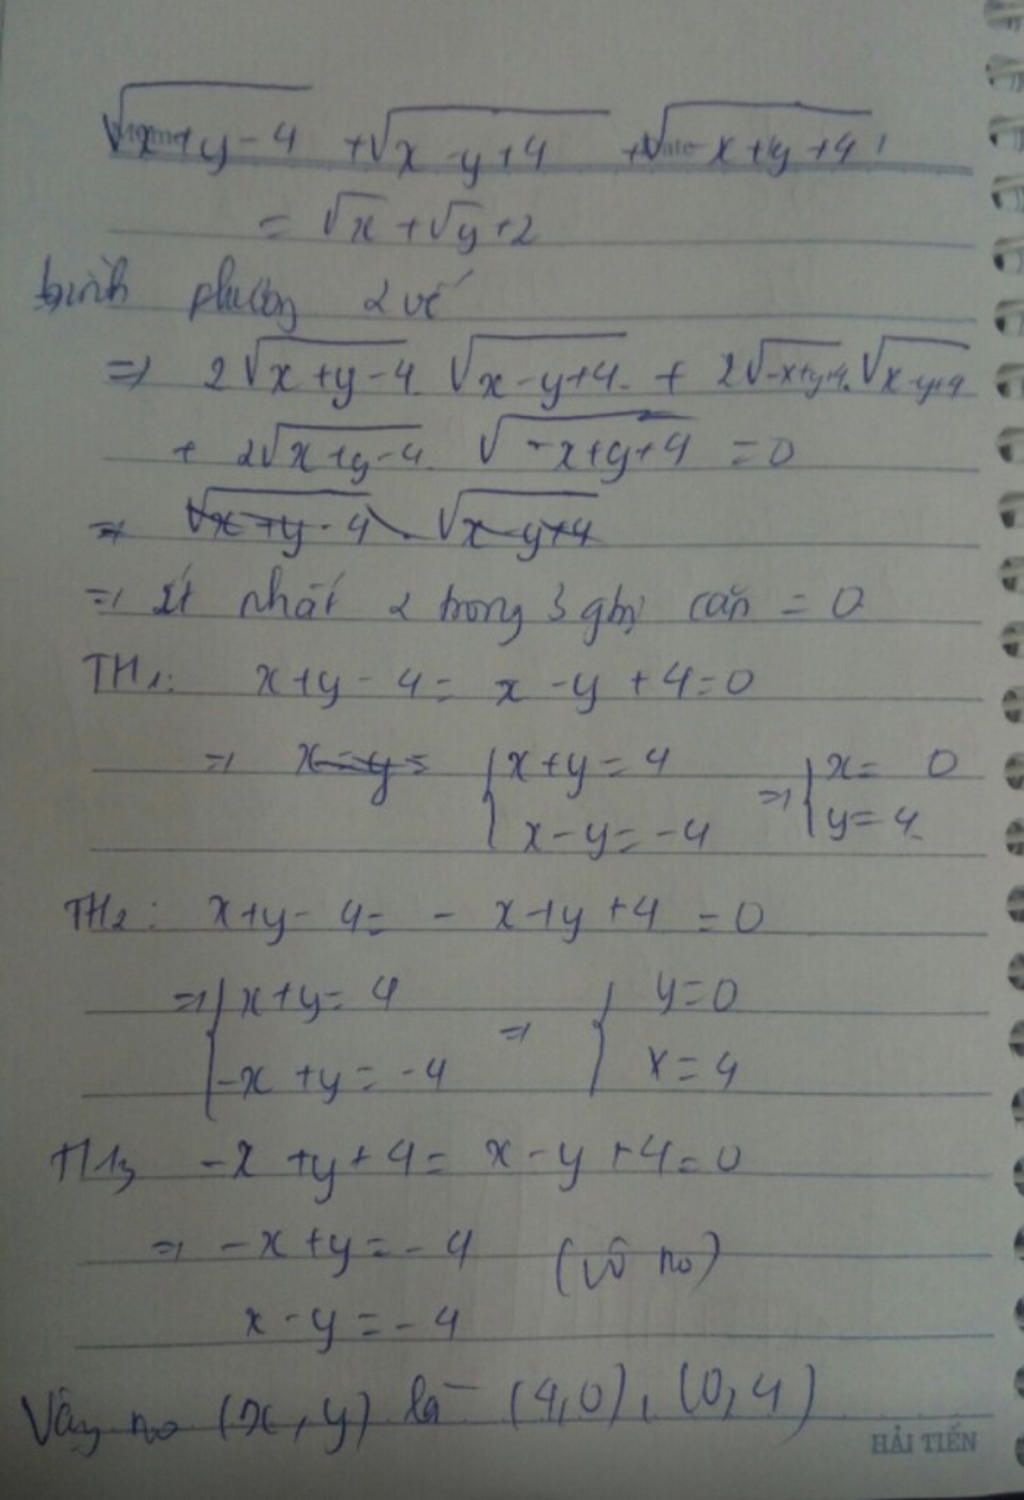 √x+y-4 + √x-y+4 + √-x+y+4
= √x + √y + 2
bình phương 2 vế
=> 2√x+y-4 . √x-y+4 + 2√-x+y+4 . √x-y+4
+ 2√x+y-4 . √-x+y+4 = 0
=> √x+y-4 . √x-y+4
=> ít nhất 2 trong 3 gtrị căn = 0
TH1: x+y-4 = x-y+4=0
=> x=y= { x+y=4 => { x= 0
x-y=-4 y=4
TH2: x+y-4= -x+y+4 =0
=> { x+y=4 => { y=0
-x+y=-4 x=4
TH3 -x+y+4= x-y+4=0
=> -x+y=-4 (vô no)
x-y=-4
Vậy no (x,y) là (4,0), (0,4)
HẢI TIẾN